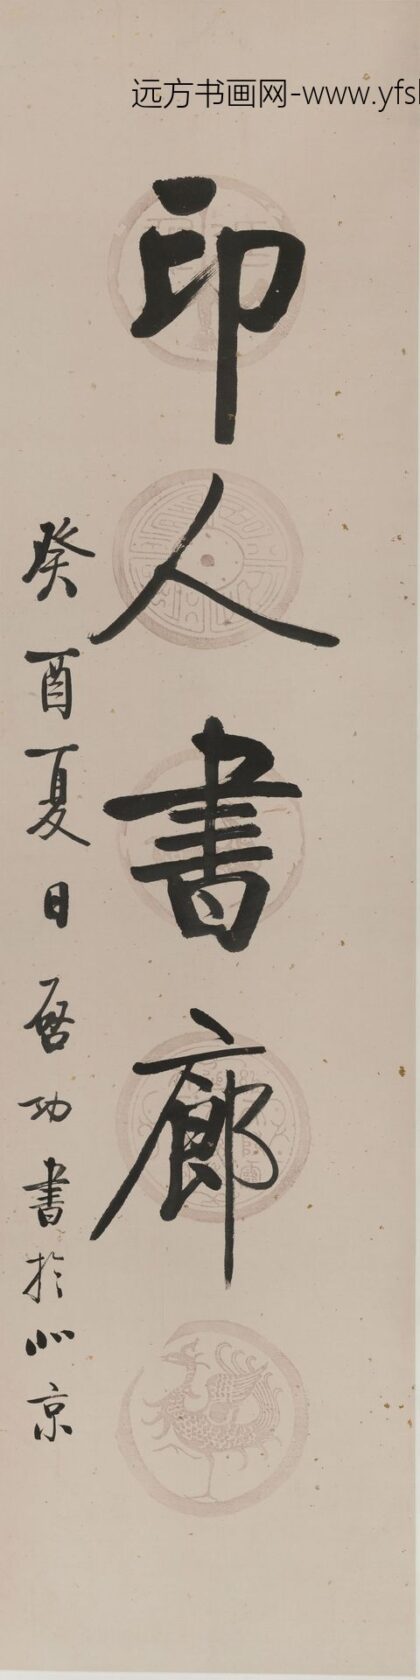 远方书画网-www.yfs
印人書廊
癸酉夏日啓功書於北京